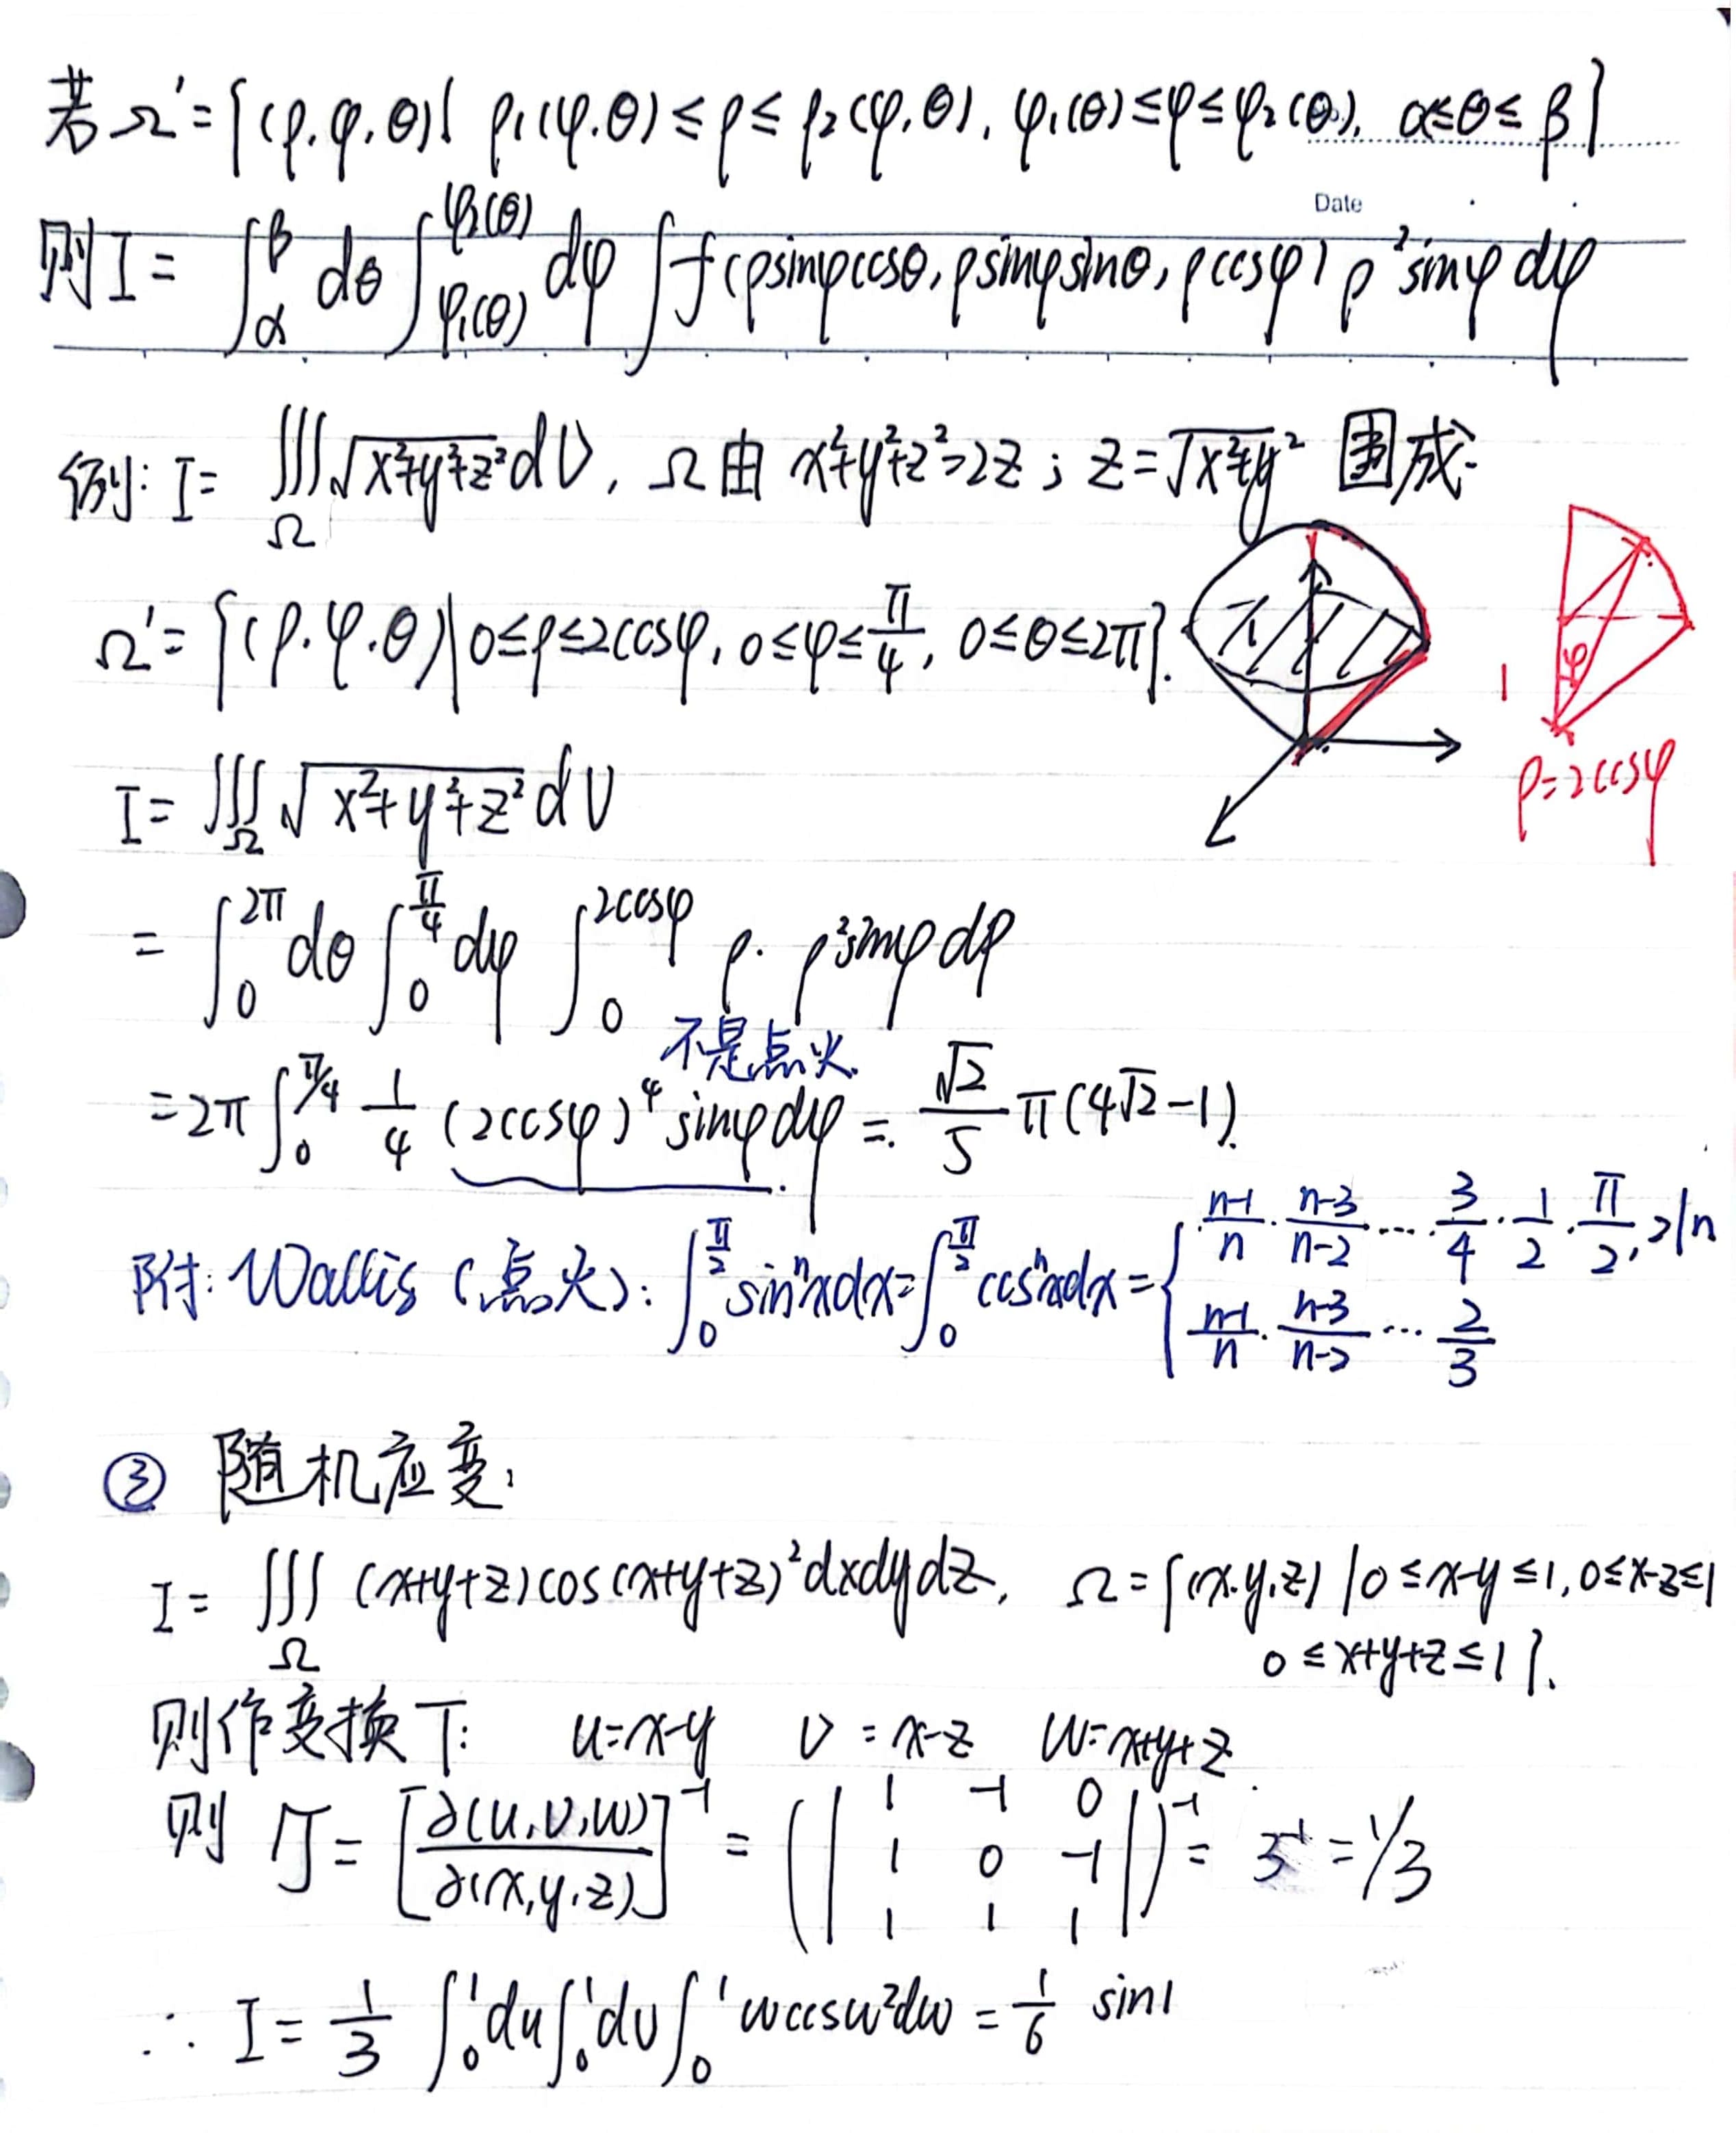 若Ω'={(ρ.φ.θ)| ρ₁(φ.θ)≤ρ≤ρ₂(φ,θ), φ₁(θ)≤φ≤φ₂(θ), α≤θ≤β}
Date
则I= ∫_α^β dθ ∫_{φ₁(θ)}^{φ₂(θ)} dφ ∫ f(ρsinφcosθ, ρsinφsinθ, ρcosφ) ρ²sinφ dρ
例: I= ∭_Ω √(x²+y²+z²) dV, Ω由 x²+y²+z²=2z; z=√(x²+y²) 围成.
Ω'={(ρ.φ.θ)|0≤ρ≤2cosφ, 0≤φ≤π/4, 0≤θ≤2π}.
φ
1
ρ=2cosφ
I= ∭_Ω √(x²+y²+z²) dV
= ∫_0^{2π} dθ ∫_0^{π/4} dφ ∫_0^{2cosφ} ρ· ρ²sinφ dρ
不是点火.
=2π ∫_0^{π/4} 1/4 (2cosφ)⁴ sinφdφ = √2/5 π(4√2-1).
附: Wallis (点火): ∫_0^{π/2} sinⁿxdx=∫_0^{π/2} cosⁿxdx= { (n-1)/n · (n-3)/(n-2) ··· 3/4 · 1/2 · π/2, 2|n
(n-1)/n · (n-3)/(n-2) ··· 2/3
③ 随机应变:
I= ∭_Ω (x+y+z)cos(x+y+z)²dxdydz, Ω={(x.y,z) |0≤x-y≤1, 0≤x-z≤1
0≤x+y+z≤1}.
则作变换T: u=x-y v=x-z w=x+y+z.
则 J= [∂(u,v,w)/∂(x,y,z)]⁻¹ = (| 1 -1 0
1 0 -1
1 1 1 |)⁻¹ = 3⁻¹ = 1/3
∴ I= 1/3 ∫_0^1 du ∫_0^1 dv ∫_0^1 wcosw²dw = 1/6 sin1